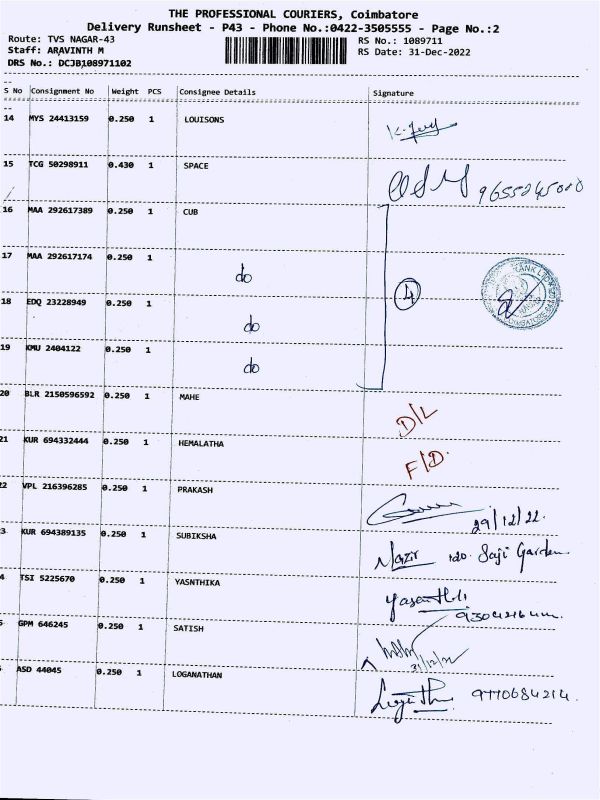 THE PROFESSIONAL COURIERS, Coimbatore
Delivery Runsheet - P43 - Phone No.:0422-3505555 - Page No.:2
Route: TVS NAGAR-43 RS No.: 1089711
Staff: ARAVINTH M RS Date: 31-Dec-2022
DRS No.: DCJB108971102
S No Consignment No Weight PCS Consignee Details Signature
14 MYS 24413159 0.250 1 LOUISONS
15 TCG 50298911 0.430 1 SPACE
16 MAA 292617389 0.250 1 CUB
17 MAA 292617174 0.250 1 do
4
18 EDQ 23228949 0.250 1 do
19 KMU 2404122 0.250 1 do
20 BLR 2150596592 0.250 1 MAHE D/L
21 KUR 694332444 0.250 1 HEMALATHA F/D.
22 VPL 216396285 0.250 1 PRAKASH 29/12/22.
3 KUR 694389135 0.250 1 SUBIKSHA Nazir 120. Saji Garden
4 TSI 5225670 0.250 1 YASNTHIKA
GPM 646245 0.250 1 SATISH 31/12/22
ASD 44045 0.250 1 LOGANATHAN 9770684214.